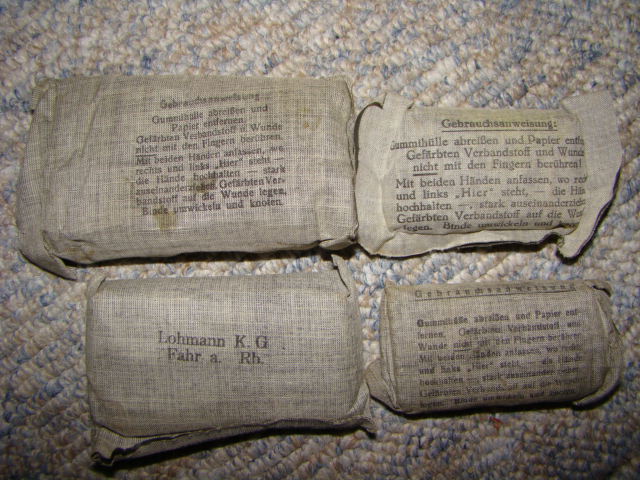 Gebrauchsanweisung
Gummihülle abreißen und
Papier entfernen.
Gefärbten Verbandstoff u. Wunde
nicht mit den Fingern berühren.
Mit beiden Händen anfassen, wo
rechts und links „Hier" steht —
die Hände hochhalten — stark
auseinanderziehen. Gefärbten Ver-
bandstoff auf die Wunde legen,
Binde umwickeln und knoten.
Gebrauchsanweisung:
Gummihülle abreißen und Papier entfe
Gefärbten Verbandstoff und Wunde
nicht mit den Fingern berühren!
Mit beiden Händen anfassen, wo rec
und links „Hier" steht, — die Hän
hochhalten —, stark auseinanderziehe
Gefärbten Verbandstoff auf die Wun
legen. Binde umwickeln und
Lohmann K. G.
Fahr a. Rh.
Gebrauchsanweisung
Gummihülle abreißen und Papier ent-
fernen. Gefärbten Verbandstoff und
Wunde nicht mit den Fingern berühren
Mit beiden Händen anfassen, wo rechts
und links „Hier" steht — die Hände
hochhalten — stark auseinanderziehen
Gefärbten Verbandstoff auf die Wunde
legen. Binde umwickeln und